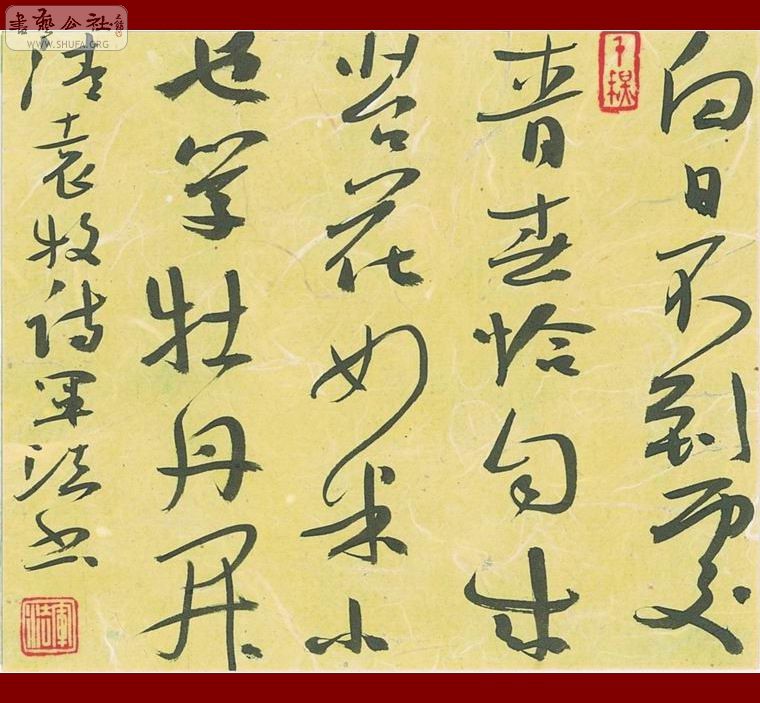 書藝公社
WWW.SHUFA.ORG
白日不到處
青春恰自来
苔花如米小
也学牡丹开
清袁枚诗军法书